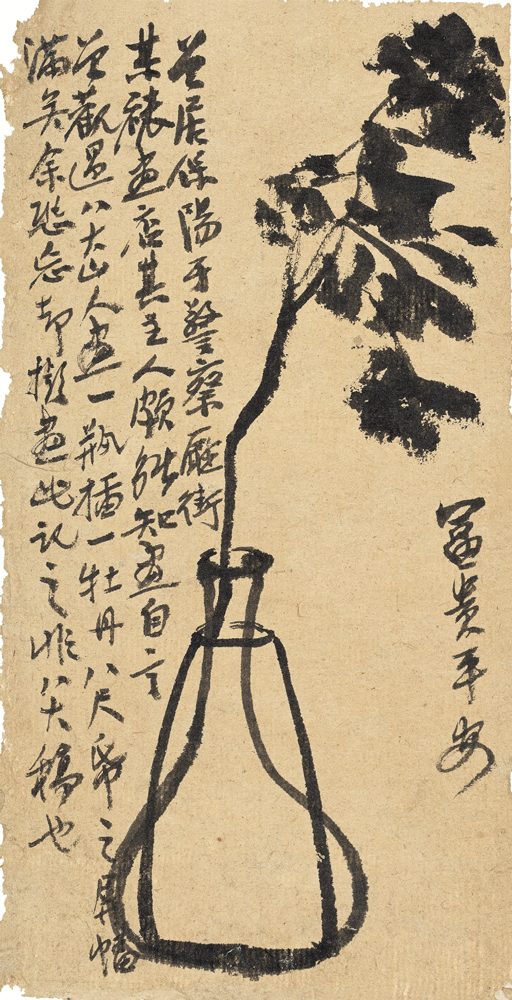 富貴平安
曾居保陽于警察廳街
某裱畫店其主人頗能知畫自言
曾觀過八大山人畫一瓶插一牡丹八尺帋之屏幡
滿矣余恐忘却擬畫此記之非八大稿也